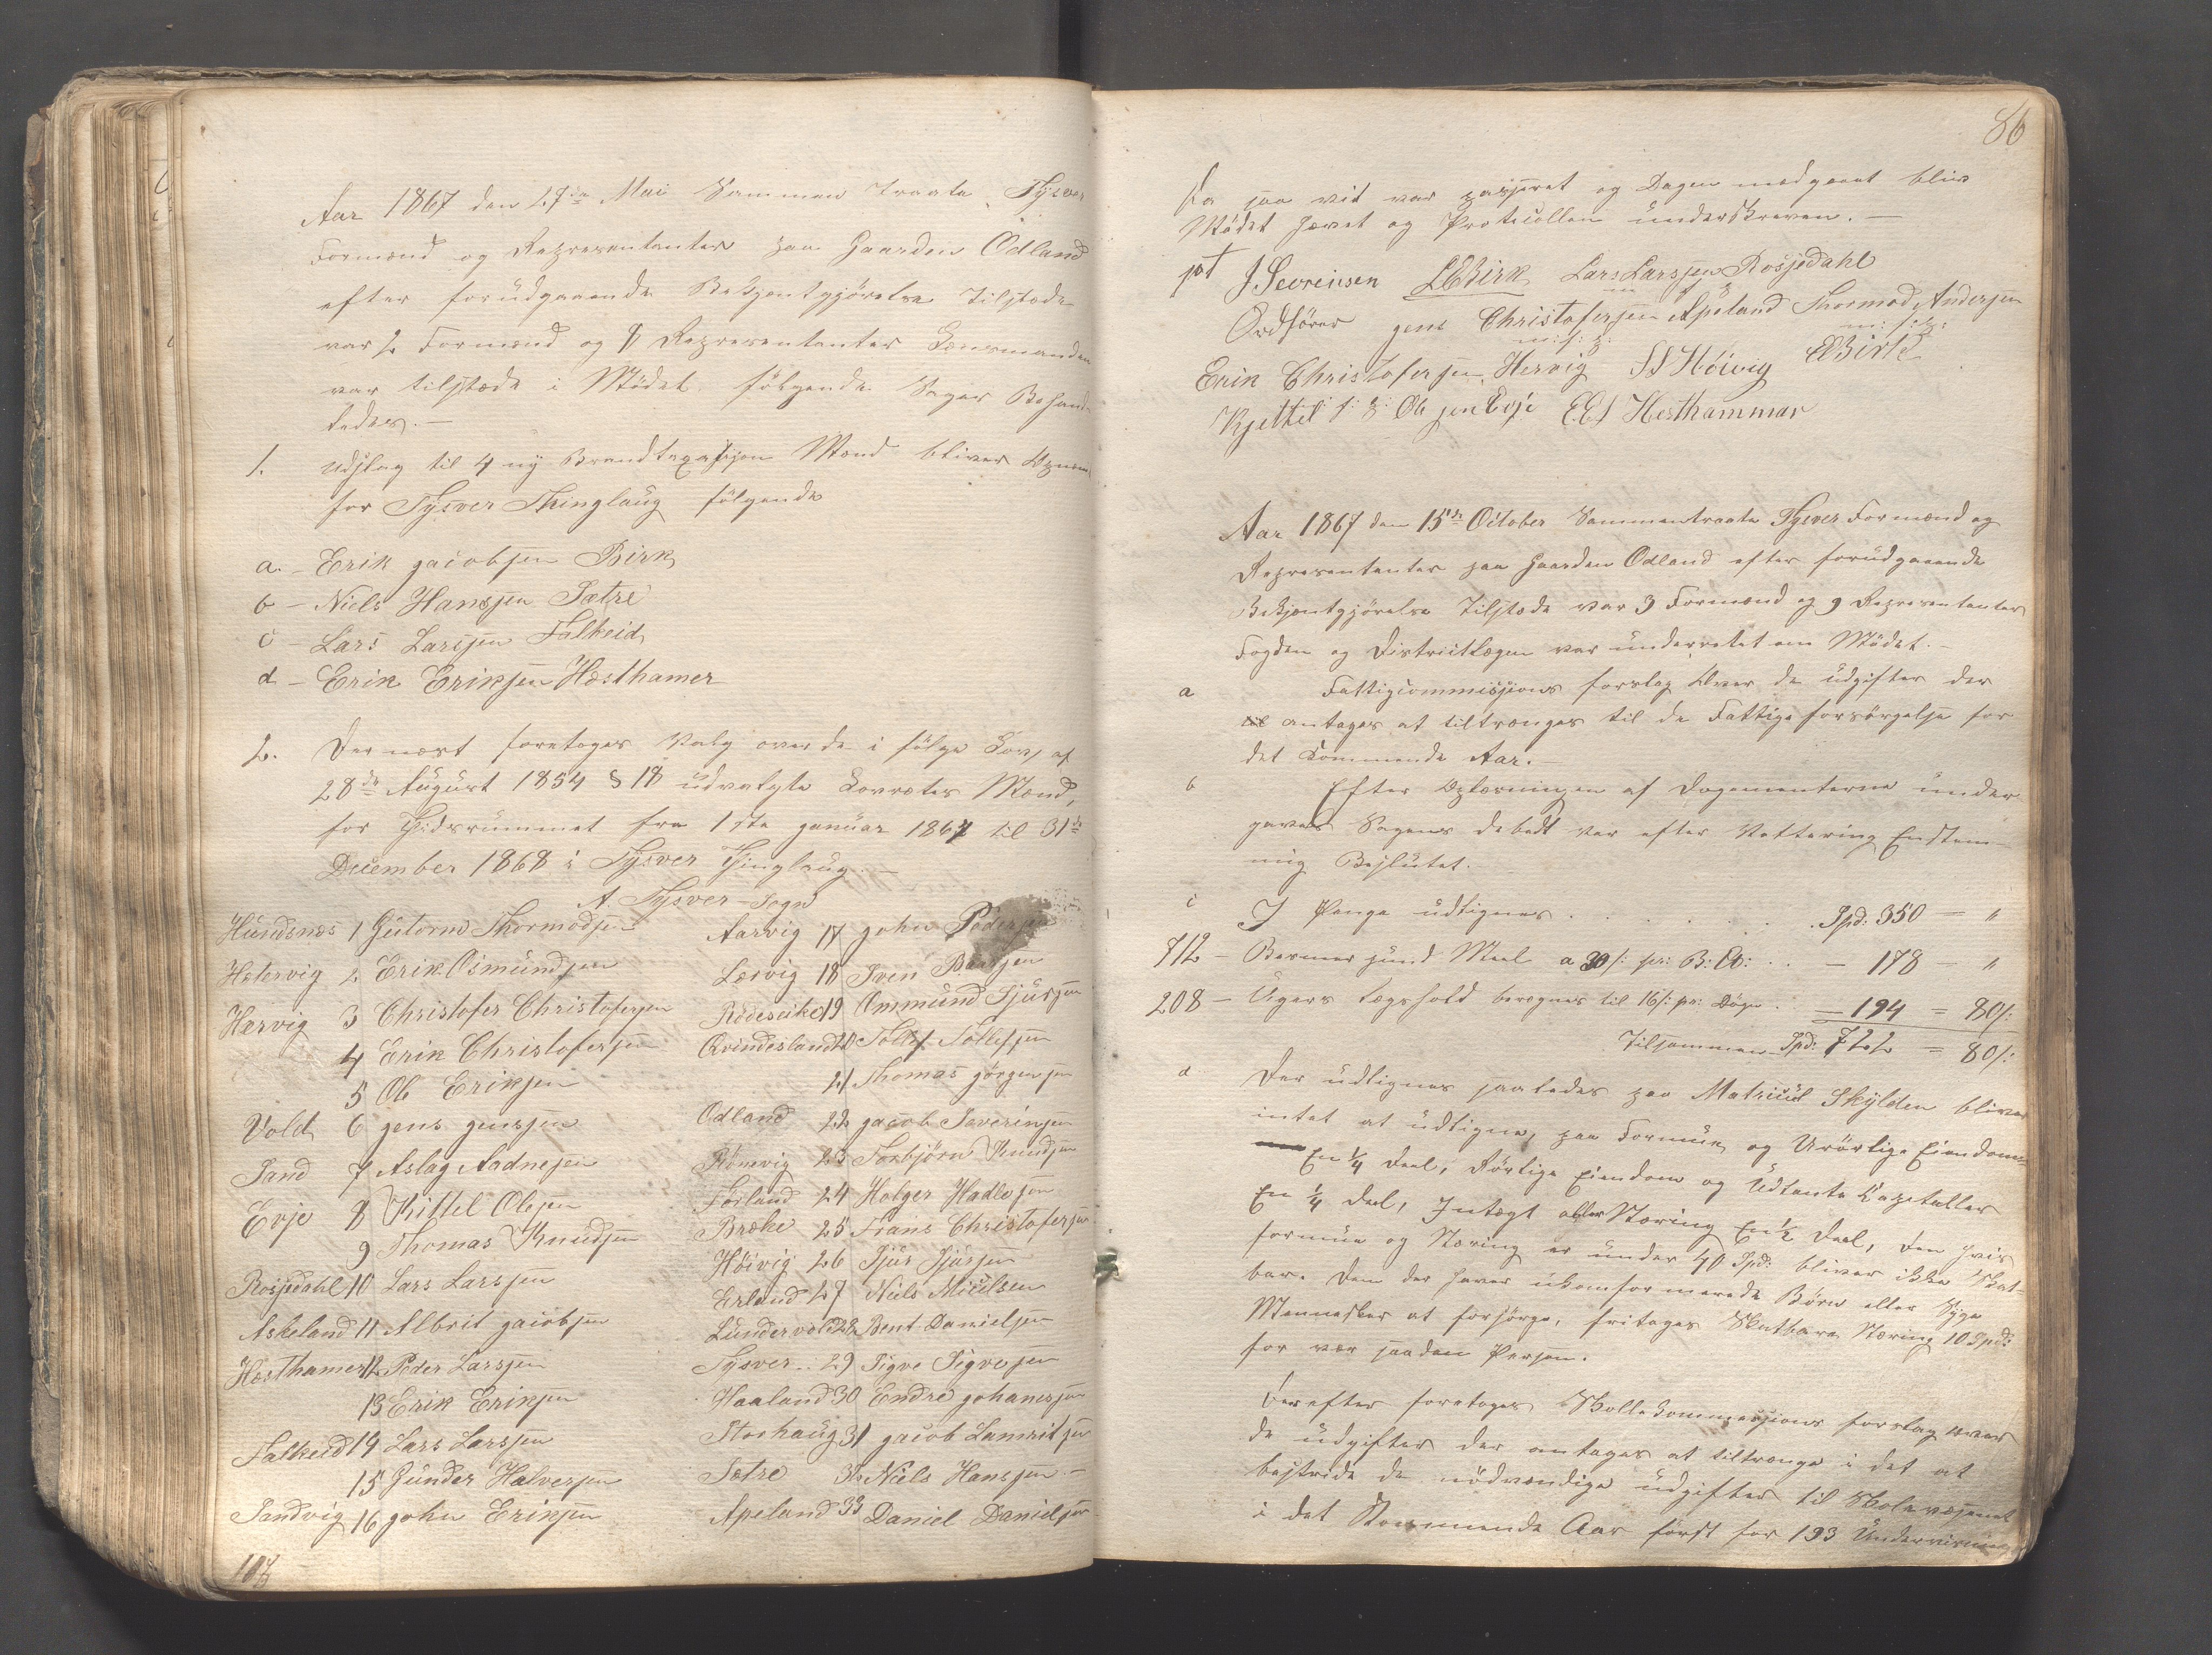 Aar 1867 den 27de Mai Sammen traate Tysver
Formænd og Representanter paa Gaarden Odland
efter forudgaaende Bekjentgjørelse tilstede
var 2 Formænd og 8 Representanter Lensmanden
var tilstæde i Mødet følgende Sager Behand-
ledes. —
1. Udslag til 4 ny Brandtaxasjon Mænd bliver
for Tysver Thinglaug følgende
a. – Erik Jacobsen Birk
b – Niels Hansen Sætre
c – Lars Larssen Falkeid
d – Erik Eriksen Hæsthamer
2. Der næst foretoges Valg over de i følge Lov af
28de August 1854 § 18 udvalgte Lavrettes Mænd,
for Tidsrummet fra 1ste Januar 1867 til 31te
December 1868 i Tysver Thinglaug. —
A. Tysver – Sogn
Hundsnæs 1 Gutorm Thormodsen
Hetervig 2 Erik Osmundsen
Hervig 3 Christofer Christofersen
4 Erik Christofersen
5 Ole Eriksen
Vold 6 Jens Jensen
Sand 7 Aslag Aadnesen
Evje 8 Kittel Olesen
9 Thomas Knudsen
Rossedahl 10 Lars Larssen
Askeland 11 Albrit Jacobsen
Hæsthamer 12 Peder Larssen
13 Erik Eriksen
Falkeid 14 Lars Larssen
15 Gunder Halversen
Sandvig 16 John Eriksen
Aarvig 17 John Pedersen
Lervig 18 Sven
19 Ommund Sjursen
Qvindesland 20 Tollef Tollefsen
21 Thomas Jørgensen
Odland 22 Jacob Severinsen
23 Torbjørn Knudsen
Førland 24 Holger Hadlesen
Bræke 25 Frans Christofersen
Høivig 26 Sjur Sjursen
Erland 27 Niels Nielsen
Lundervold 28 Bent Danielsen
Tysver 29 Sigve Sigvesen
Haaland 30 Endre Johanessen
Storhaug 31 Jacob Lauritsen
Sætre 32 Niels Hanssen –
Apeland 33 Daniel Danielsen
108
86
Da saa vid var passeret og Dagen medgaaet blev
Mødet hævet og Protocollen underskreven. —
pt J. Severinsen LEBirk Lars Larssen Rossedahl
Ordfører Jens Christofersen Apeland Thormod Andersen
m: f: p:
Erik Christofersen Hervig SS Høivig EBirk
Kjettel Olesen Evje EES Hesthammar
Aar 1867 den 15de October Sammentraate Tysver Formænd og
Representanter paa Gaarden Odland efter forudgaaende
Bekjentgjørelse tilstede var 3 Formænd og 9 Representanter
Fogden og Districtlægen var underrettet om Mødet. –
a Fattigcommissions forslag over de udgifter der
antages at tiltrænges til de Fattiges forsørgelse for
det kommende Aar. —
b Efter oplæsningen af Dogementerne under
gaves Sagens debadt var efter Vottering Enstem-
mig Besluttet. –
c I Penge udlignes . . . . Spd: 350 – „
712 – Bismer pund Meel a 30 s: pr: B: . . – 178 – „
208 – Ugers lægshold beregnes til 16 s: pr: Døgn . – 194 = 80 s:
Tilsammen Spd: 722 = 80 s:
d Der udlignes saaledes paa Matricul Skylden bliver
intet at udligne, paa Formue og Urørlige Eiendom
En 1/4 Deel, Rørlige Eiendom og Udlaante Kapitaller
En 1/4 Deel, Intægt eller Næring En 1/2 Deel, den hvis
formue og Næring er under 40 Spd: bliver ikke skat-
bar. Dem der haver ukomformerede Børn eller Syge
Mennesker at forsørge, fritages Skatbare Næring 10 Spd:
for vær saadan Person.
Derefter foretoges Skollekommissions forslag over
de udgifter der antages at tiltrænge i det at
bestride de nødvendige udgifter til Skolevæsenet
i det Kommende Aar først for 193 Undervisnings